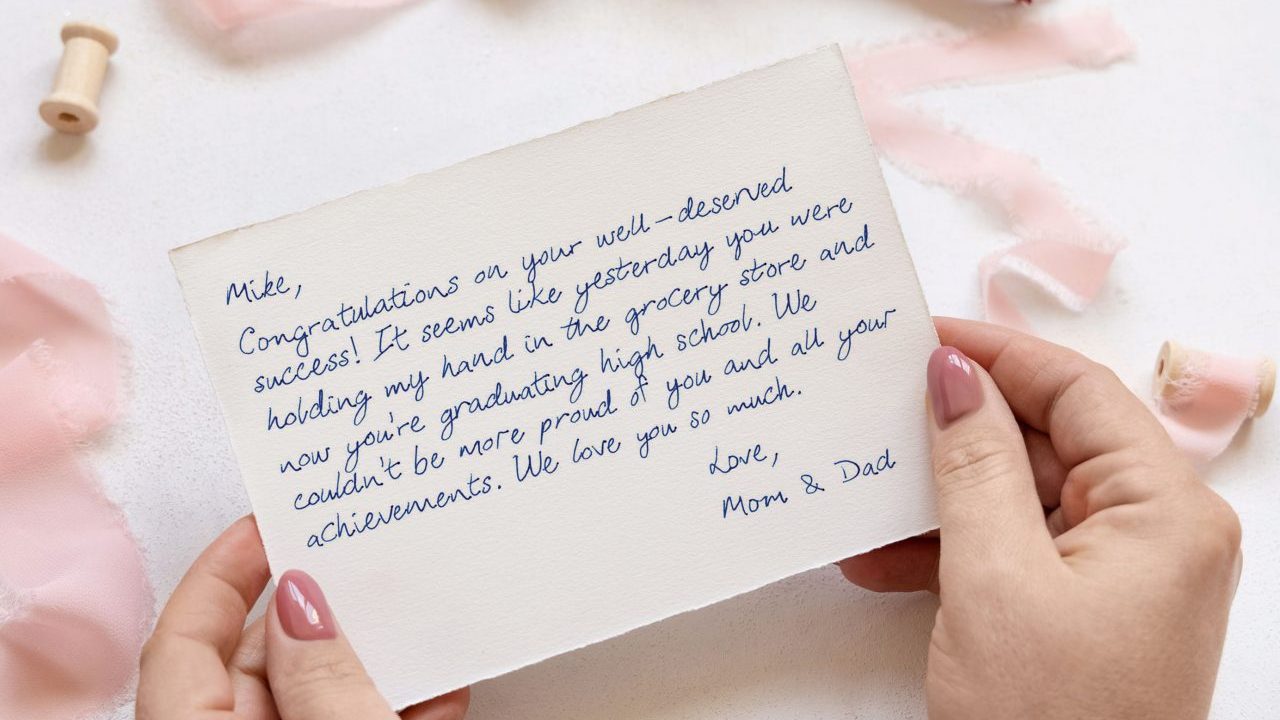 Mike,
Congratulations on your well-deserved
success! It seems like yesterday you were
holding my hand in the grocery store and
now you're graduating high school. We
couldn't be more proud of you and all your
achievements. We love you so much.
Love,
Mom & Dad